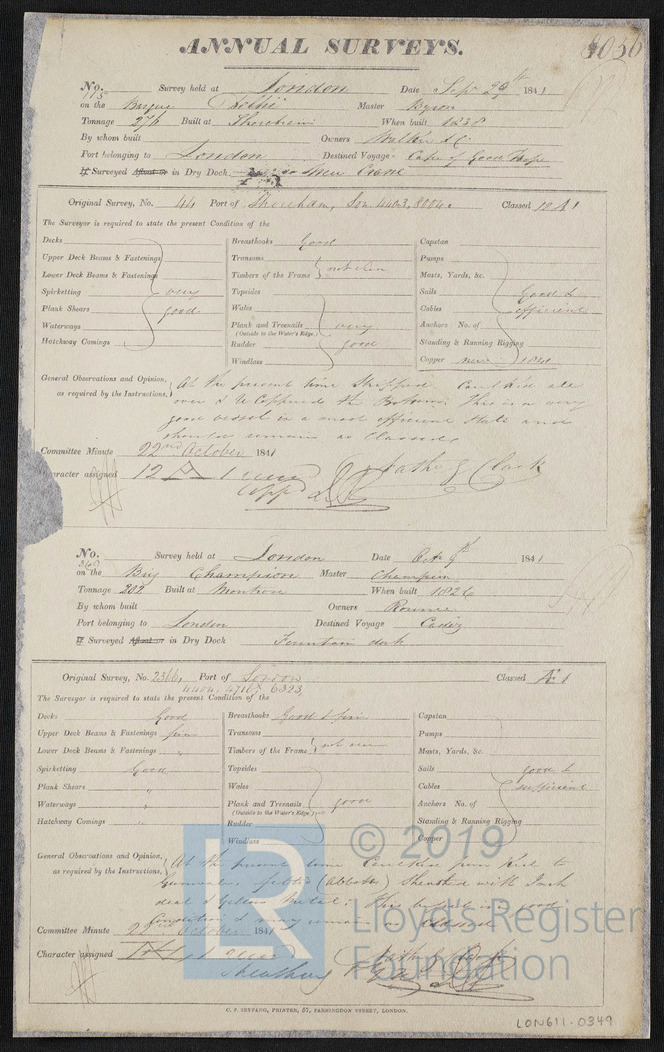 ANNUAL SURVEYS.
8050
No. 775 Survey held at London Date Sept 29th 1841
on the Barque Master Byron
Tonnage 276 Built at Shoreham When built 1838
By whom built Owners Walker & C.
Port belonging to London Destined Voyage Cape of Good Hope
If Surveyed Afloat or in Dry Dock, New Crane
Original Survey, No. 44 Port of Shoreham, Lon. 4403, 8004. Classed 12 A 1
The Surveyor is required to state the present Condition of the
Decks
Upper Deck Beams & Fastenings
Lower Deck Beams & Fastenings
Spirketting very
Plank Shears good
Waterways
Hatchway Comings
Breasthooks Good
Transoms
Timbers of the Frame not seen
Topsides
Wales
Plank and Treenails very
(Outside to the Water's Edge)
Rudder good
Windlass
Capstan
Pumps
Masts, Yards, &c.
Sails Good &
Cables efficient
Anchors No. of
Standing & Running Rigging
Copper new 1841
General Observations and Opinion, At the present time Stripped. Caulked all
as required by the Instructions, over & ReCoppered the Bottom. This is a very
good vessel in a most efficient state and
should remain as Classed.
Committee Minute 22nd October 1841
Character assigned 12 A 1
Nathl. G. Clark
No. Survey held at London Date Oct 9th 1841
on the Brig Champion Master Champion
Tonnage 202 Built at When built 1826
By whom built Owners
Port belonging to London Destined Voyage Cadiz
If Surveyed Afloat or in Dry Dock Fountain dock
Original Survey, No. 2366, Port of London Classed Æ 1
4404, 4710, 6323,
The Surveyor is required to state the present Condition of the
Decks Good
Upper Deck Beams & Fastenings
Lower Deck Beams & Fastenings "
Spirketting Good
Plank Shears "
Waterways "
Hatchway Comings "
Breasthooks Good
Transoms
Timbers of the Frame not seen
Topsides
Wales
Plank and Treenails good
(Outside to the Water's Edge)
Rudder
Windlass
Capstan
Pumps
Masts, Yards, &c.
Sails good &
Cables sufficient
Anchors No. of
Standing & Running Rigging
Copper
General Observations and Opinion, At the present time Caulked from Keel to
as required by the Instructions, Gunwales, felted (Abbots) Sheathed with Inch
deal & Yellow Metal. This vessel is in good
Condition & may remain as Classed
Committee Minute 22nd October 1841
Character assigned
C. F. SEYFANG, PRINTER, 57, FARRINGDON STREET, LONDON.
LR © 2019
Lloyd's Register
Foundation
LON611-0349